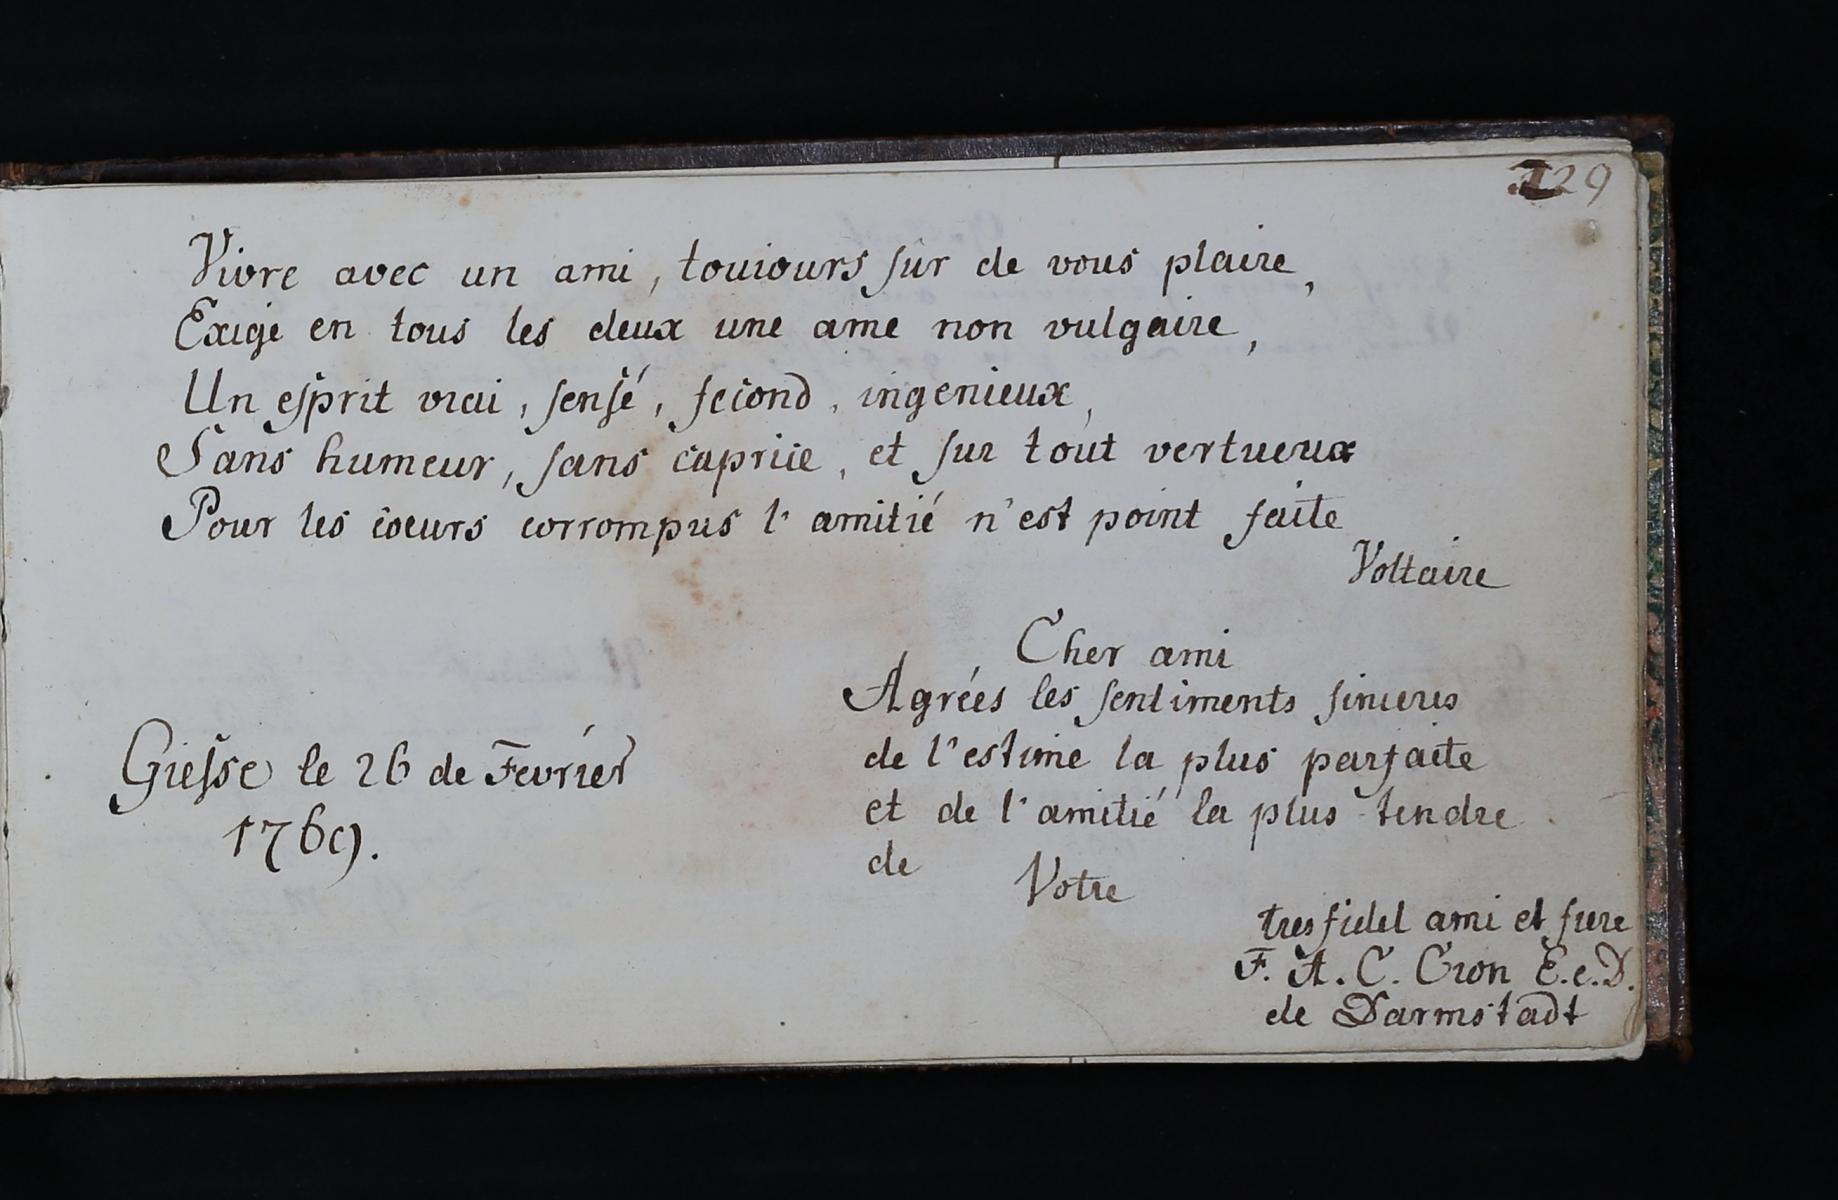 129
Vivre avec un ami, touiours sûr de vous plaire,
Exige en tous les deux une ame non vulgaire,
Un esprit vrai, sensé, fecond, ingenieux,
Sans humeur, sans caprice, et sur tout vertueux
Pour les coeurs corrompus l'amitié n'est point faite
Voltaire
Cher ami
Agrées les sentiments sinceres
de l'estime la plus parfaite
et de l'amitié la plus tendre
de Votre
tres fidel ami et frere
F. A. C. Cron E. e. D.
de Darmstadt
Giesse le 26 de Fevrier
1769.